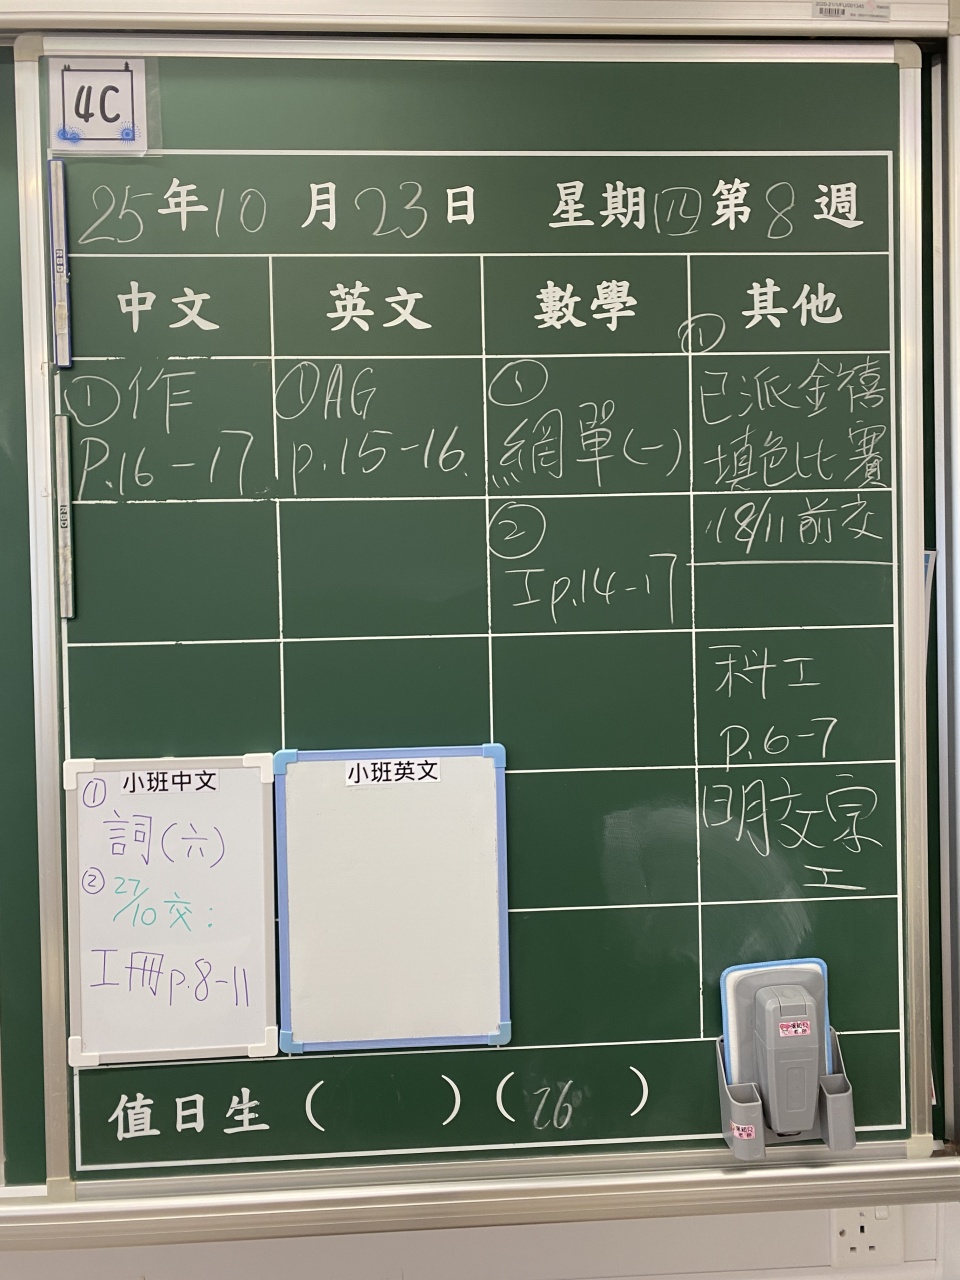 4C
25年10月23日 星期四第8週
中文 英文 數學 其他
①作
P.16-17
①AG
p.15-16.
①
網單(一)
②
工p.14-17
①
已派金禧
填色比賽
18/11前交
科工
p.6-7
明文字
工
小班中文
①
詞(六)
②
27/10交:
工冊p.8-11
小班英文
值日生 ( ) (26)
RBD
RBD